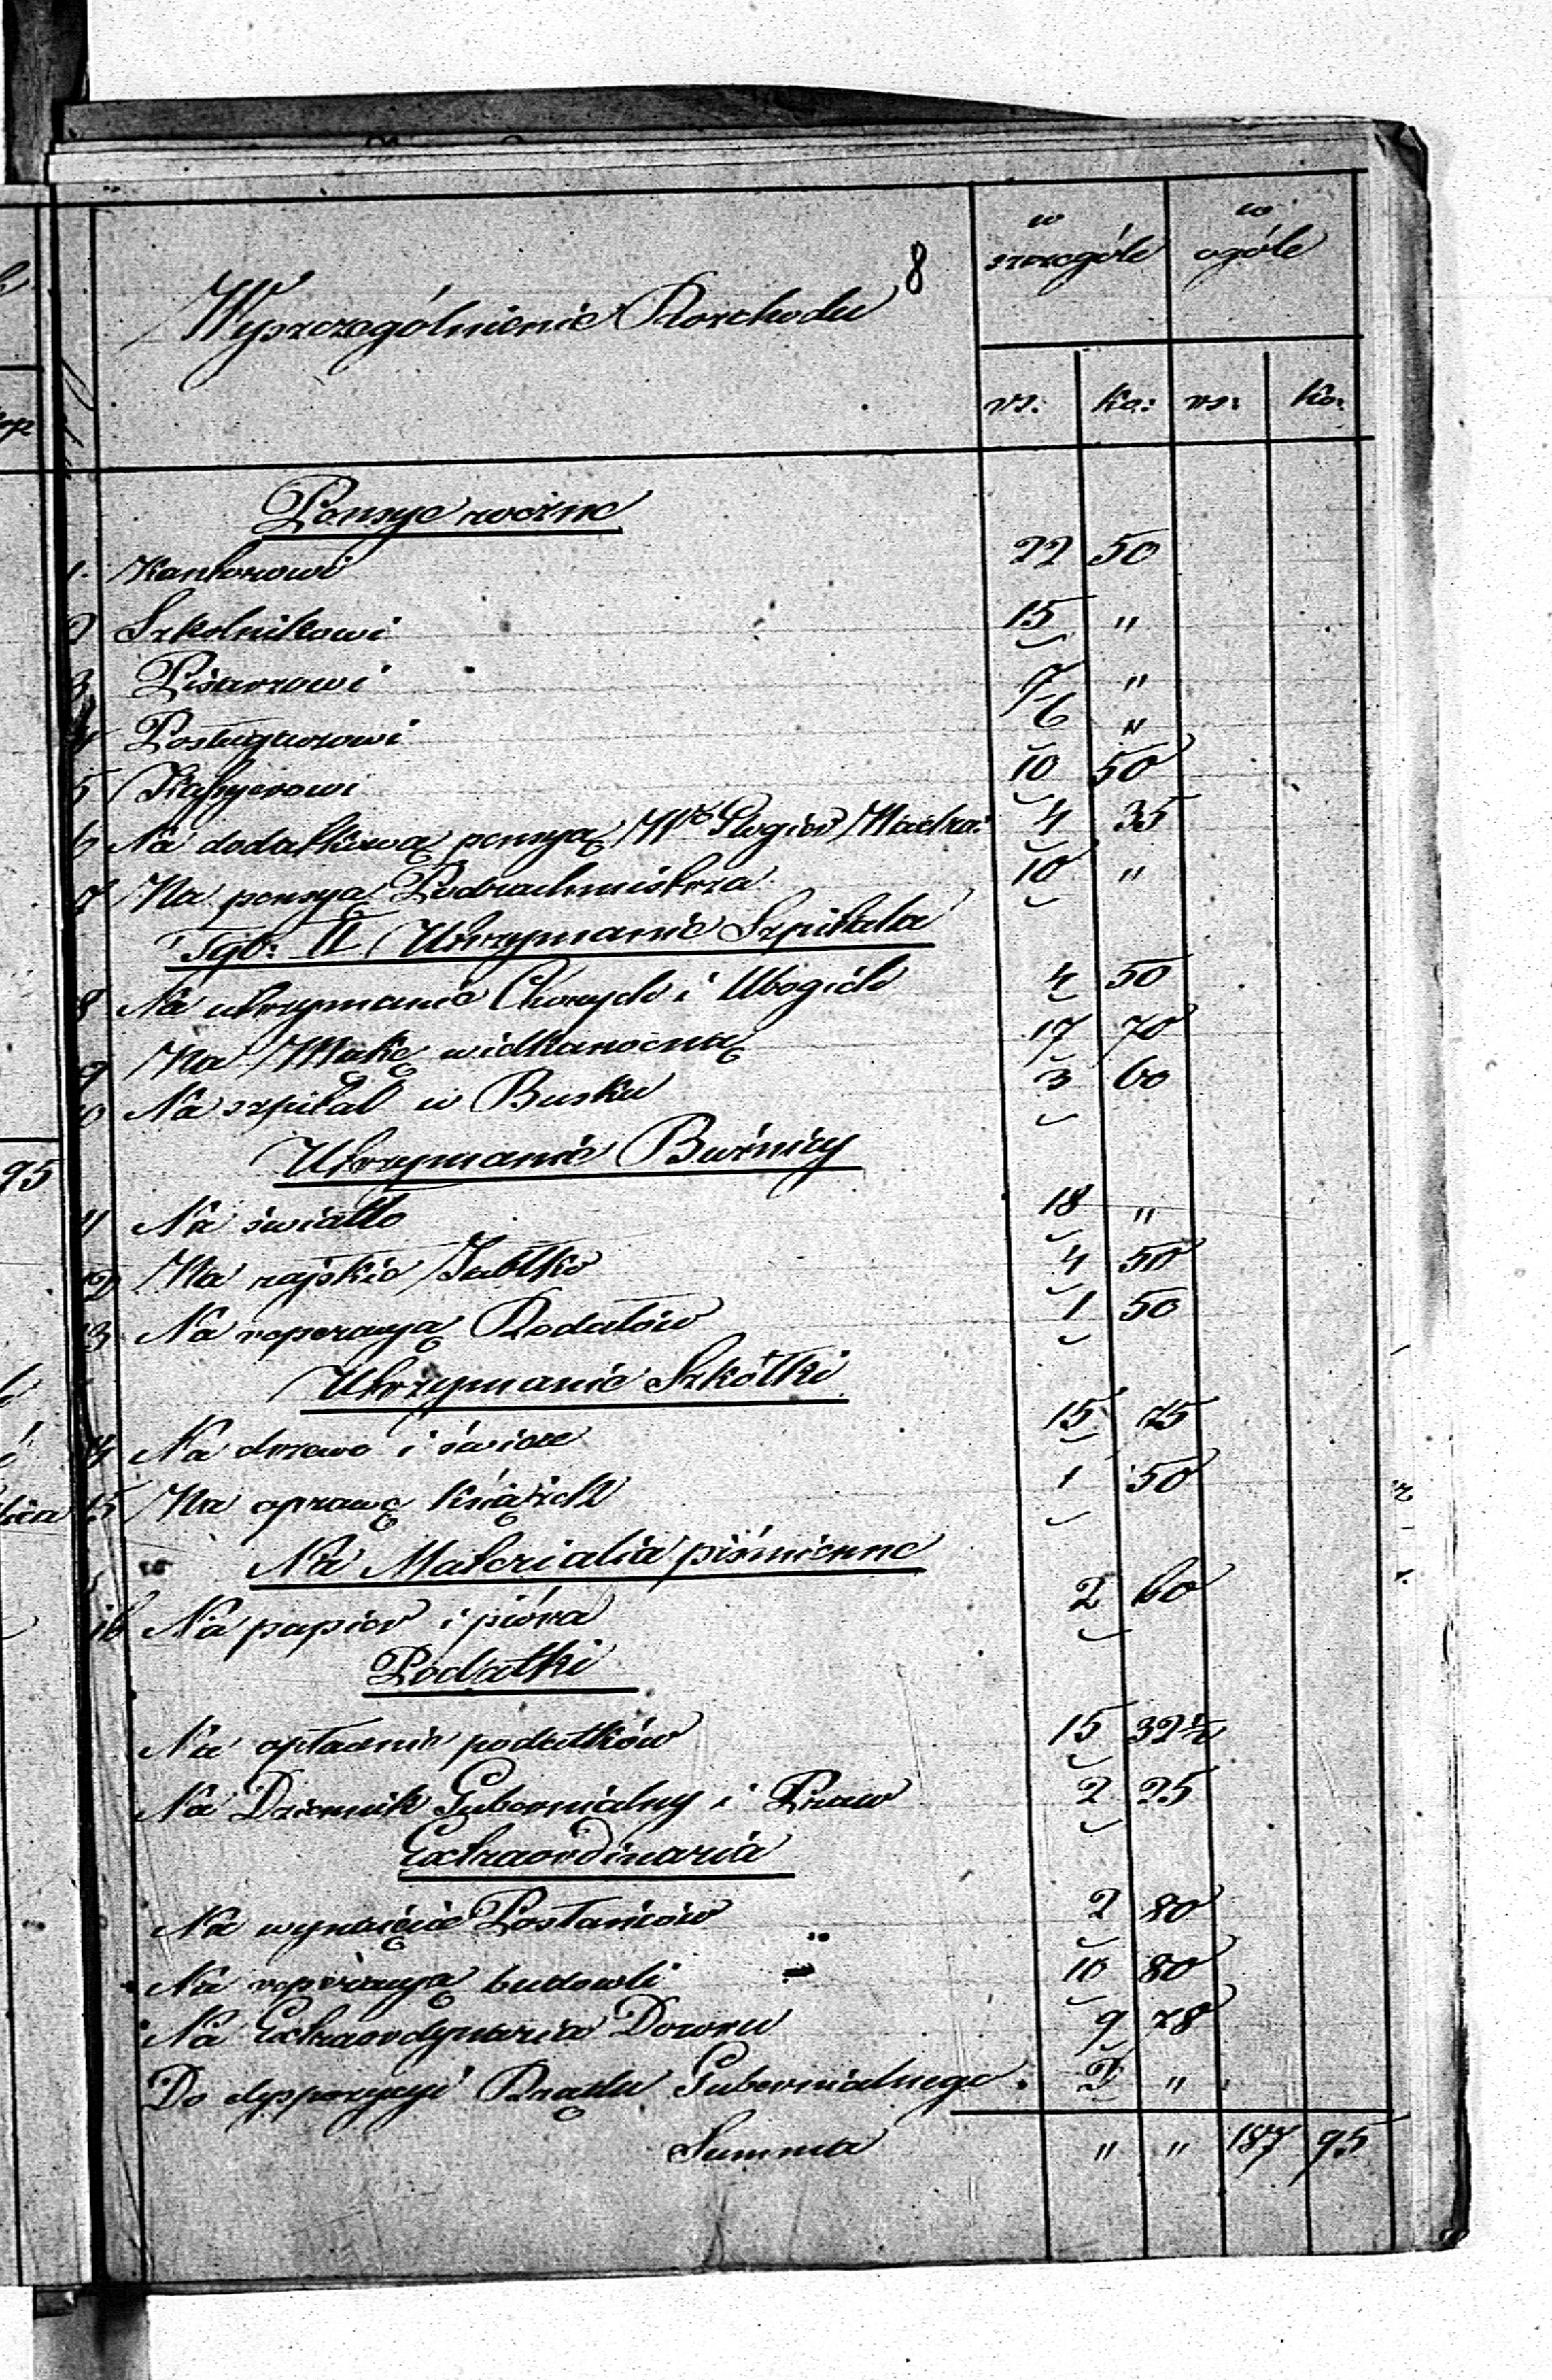 8
w szczególe w ogóle
Wyszczególnienie Rozchodu
rs: ko: rs: ko:
Pensye roczne
1. Kantorowi 22 50
2 Szkolnikowi 15 "
3 Pisarzowi 7 "
4 Posługaczowi 6 "
5 Kassyerowi 10 50
6 Na dodatkową pensyą 4 35
7 Na pensyą Podrachmistrza 10 "
Tyt: II Utrzymanie Szpitala
8 Na utrzymanie Chorych i Ubogich 4 50
9 Na Mąkę wielkanocną 17 70
10 Na szpital w Busku 3 60
Utrzymanie Bużnicy
95
11 Na światło 18 "
12 Na rajskie Jabłko 4 50
13 Na reperacyą Rodałów 1 50
Utrzymanie Szkółki
14 Na drzewo i świece 15 75
15 Na oprawę książek 1 50
Na Materialia piśmienne
16 Na papier i pióra 2 60
Podatki
Na opłacenie podatków 15 32½
Na Dziennik Gubernialny i Praw 2 25
Extraordinaria
Na wynajęcie Posłańców 2 80
Na reperacyą budowli 10 80
Na Extraordynaria Dozoru 9 78
Do dyspozycyi Rządu Gubernialnego 2 "
Summa " " 187 95